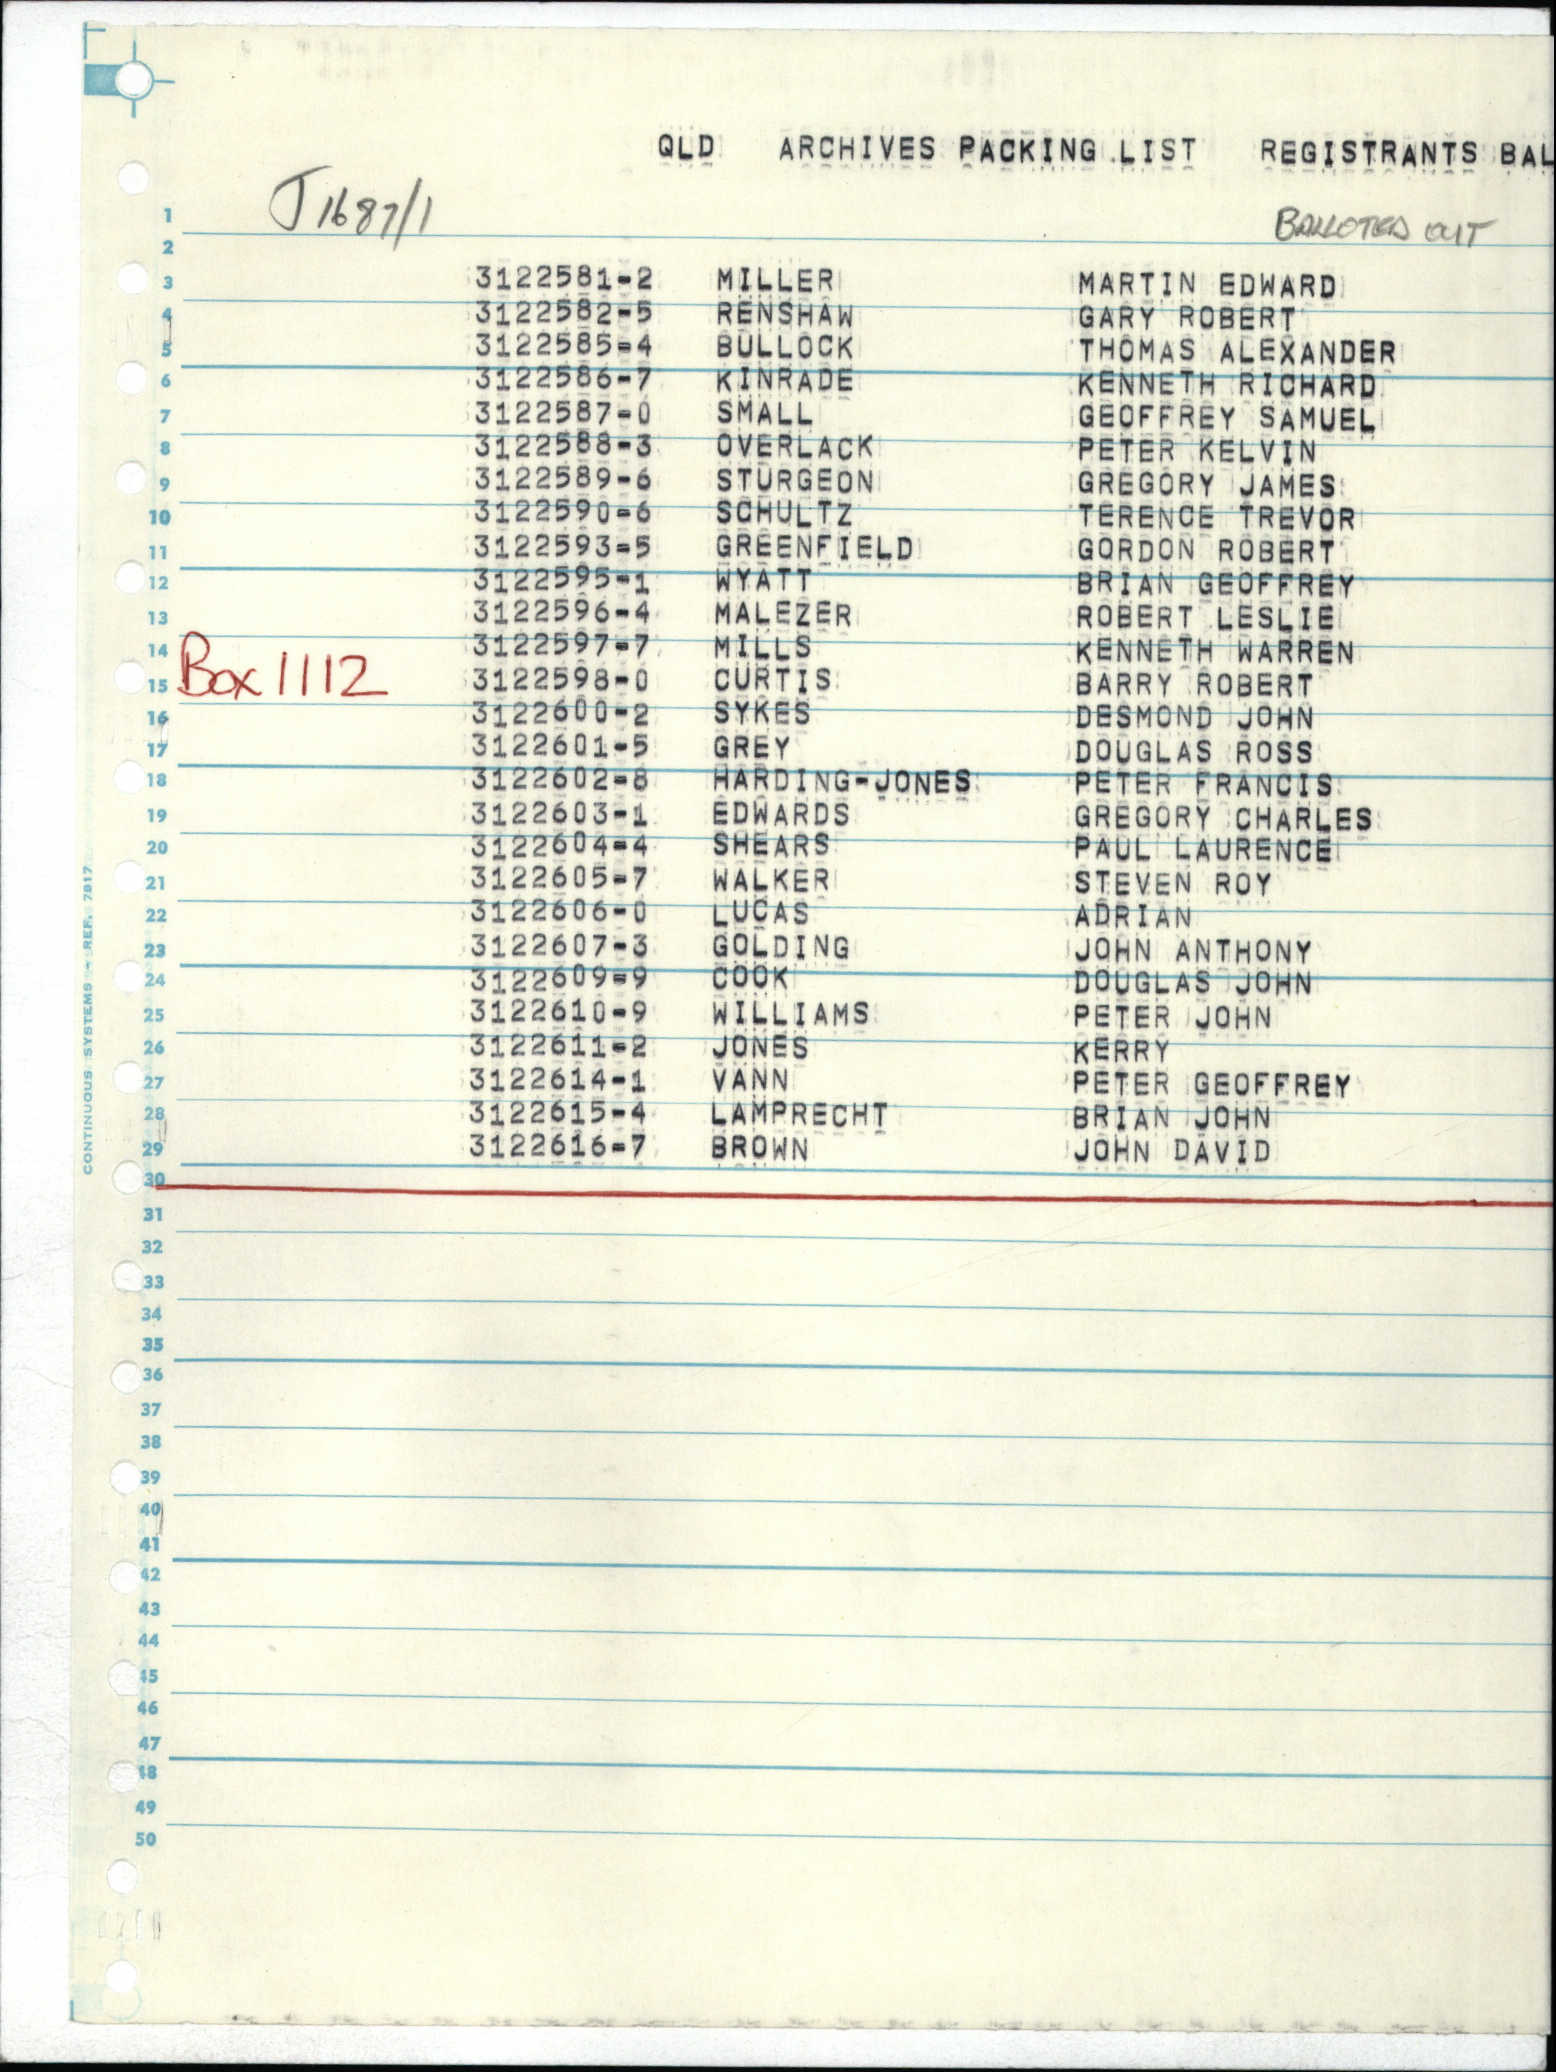 QLD ARCHIVES PACKING LIST REGISTRANTS BAL
J1687/1
BALLOTED OUT
1
2
3 3122581-2 MILLER MARTIN EDWARD
4 3122582-5 RENSHAW GARY ROBERT
5 3122585-4 BULLOCK THOMAS ALEXANDER
6 3122586-7 KINRADE KENNETH RICHARD
7 3122587-0 SMALL GEOFFREY SAMUEL
8 3122588-3 OVERLACK PETER KELVIN
9 3122589-6 STURGEON GREGORY JAMES
10 3122590-6 SCHULTZ TERENCE TREVOR
11 3122593-5 GREENFIELD GORDON ROBERT
12 3122595-1 WYATT BRIAN GEOFFREY
13 3122596-4 MALEZER ROBERT LESLIE
14 3122597-7 MILLS KENNETH WARREN
15 Box 1112 3122598-0 CURTIS BARRY ROBERT
16 3122600-2 SYKES DESMOND JOHN
17 3122601-5 GREY DOUGLAS ROSS
18 3122602-8 HARDING-JONES PETER FRANCIS
19 3122603-1 EDWARDS GREGORY CHARLES
20 3122604-4 SHEARS PAUL LAURENCE
21 3122605-7 WALKER STEVEN ROY
22 3122606-0 LUCAS ADRIAN
23 3122607-3 GOLDING JOHN ANTHONY
24 3122609-9 COOK DOUGLAS JOHN
25 3122610-9 WILLIAMS PETER JOHN
26 3122611-2 JONES KERRY
27 3122614-1 VANN PETER GEOFFREY
28 3122615-4 LAMPRECHT BRIAN JOHN
29 3122616-7 BROWN JOHN DAVID
30
31
32
33
34
35
36
37
38
39
40
41
42
43
44
45
46
47
48
49
50
CONTINUOUS SYSTEMS - REF. 7817